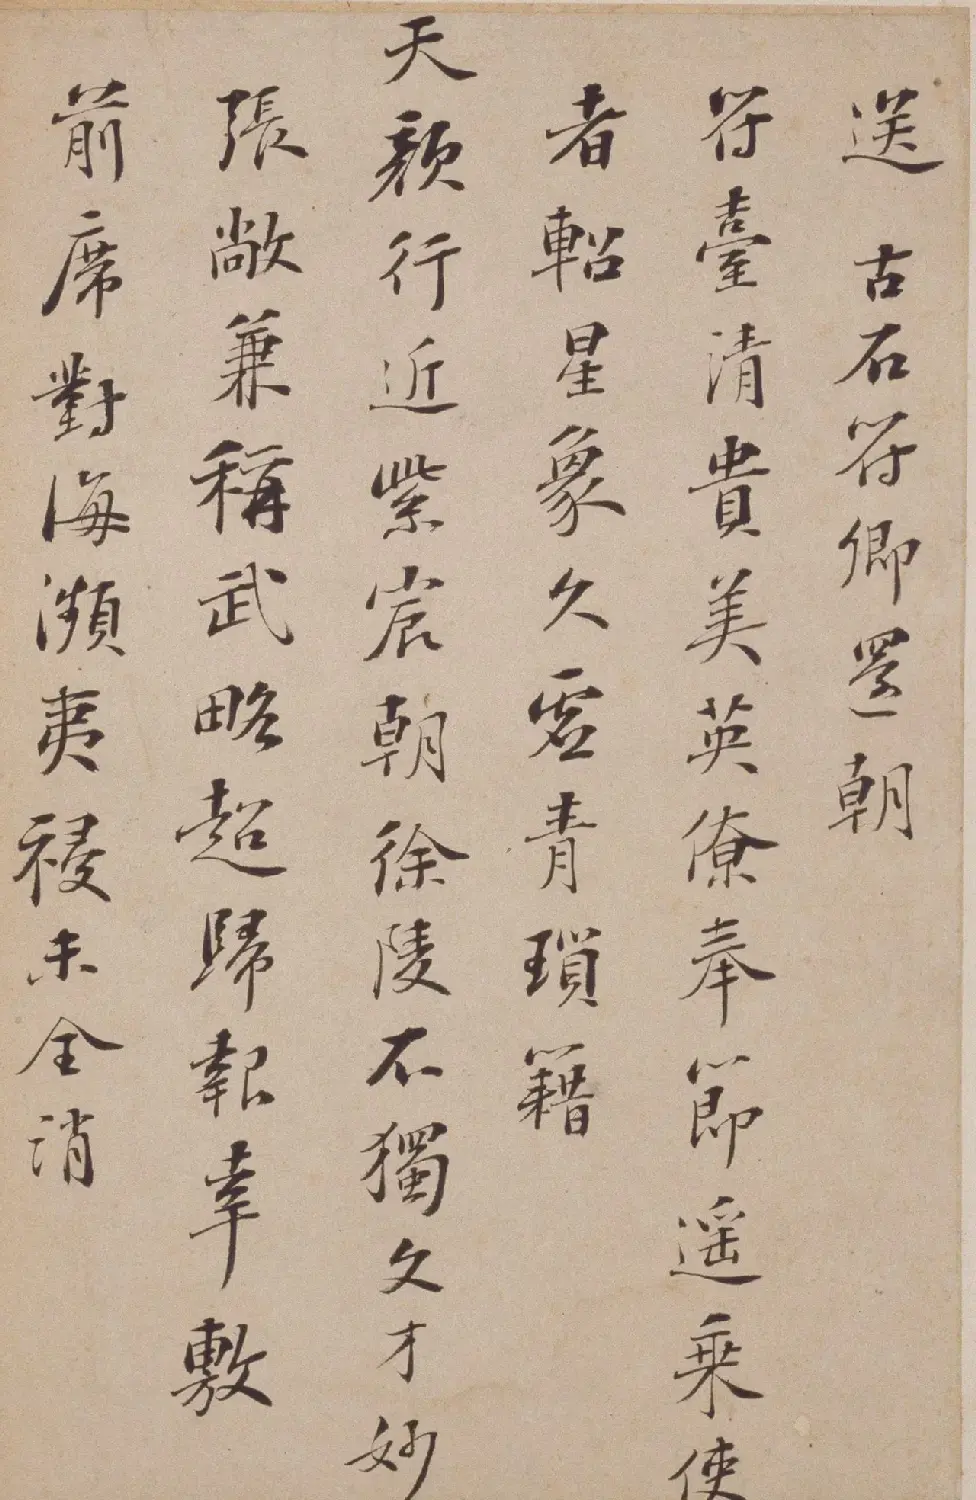 送 古石符卿還朝
符臺清貴美英僚奉節遥乗使
者軺星象久虚青瑣籍
天顔行近紫宸朝徐陵不獨文才妙
張敞兼稱武略超歸報幸敷
前席對海瀕夷祲未全消